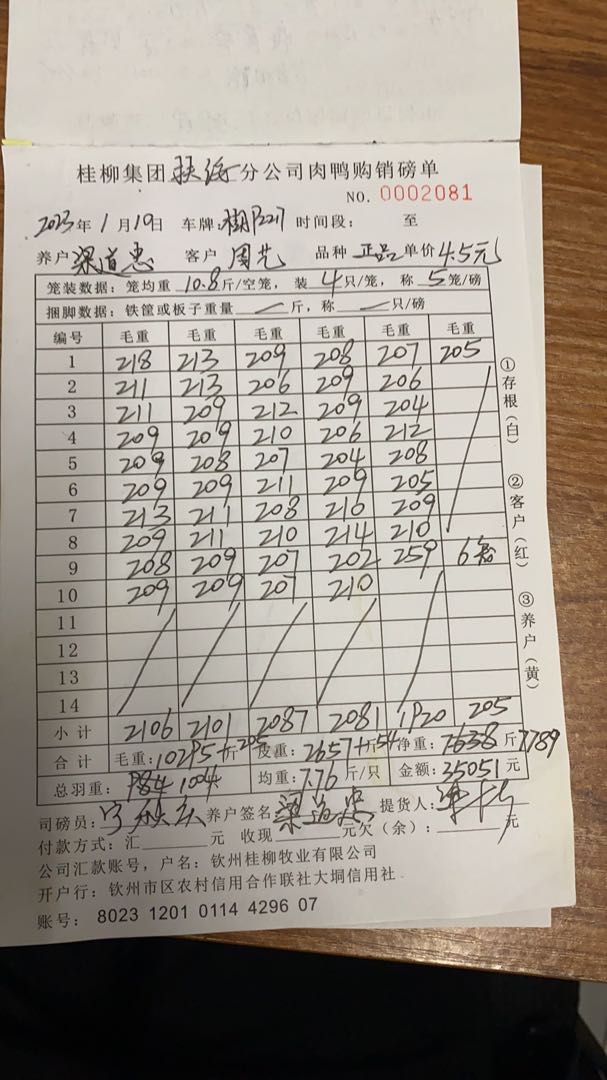 桂柳集团 扶绥 分公司肉鸭购销磅单
NO. 0002081
2023年1月19日 车牌: 时间段: 至
养户 梁道惠 客户 周艺 品种 正品 单价 4.5元
笼装数据: 笼均重 10.8 斤/空笼, 装 4 只/笼, 称 5 笼/磅
捆脚数据: 铁筐或板子重量 — 斤, 称 — 只/磅
编号 毛重 毛重 毛重 毛重 毛重 毛重
1 218 213 209 208 207 205
2 211 213 206 209 206
3 211 209 212 209 204
4 209 209 210 206 212
5 209 208 207 204 208
6 209 209 211 209 205
7 213 211 208 210 209
8 209 211 210 214 210
9 208 209 207 202 259 6笼
10 209 209 207 210
11
12
13
14
小计 2106 2101 2087 2081 1920 205
合计 毛重: 10295+205 斤 皮重: 2657+54 斤 净重: 7638 斤 7789
总羽重: 984 1004 均重: 7.76 斤/只 金额: 35051 元
司磅员: 养户签名 梁道惠 提货人:
付款方式: 汇 元 收现 元欠(余): 元
公司汇款账号, 户名: 钦州桂柳牧业有限公司
开户行: 钦州市区农村信用合作联社大垌信用社
账号: 8023 1201 0114 4296 07
①存根(白) ②客户(红) ③养户(黄)